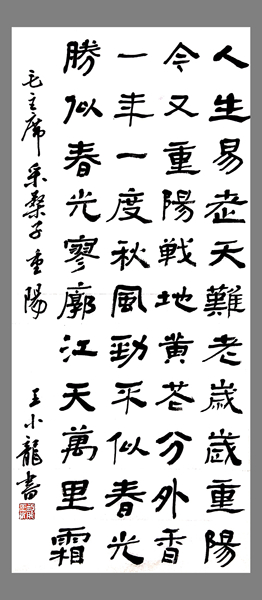 人生易老天難老歲歲重陽
今又重陽戰地黄花分外香
一年一度秋風勁不似春光
勝似春光寥廓江天萬里霜
毛主席采桑子重陽
王小龍書